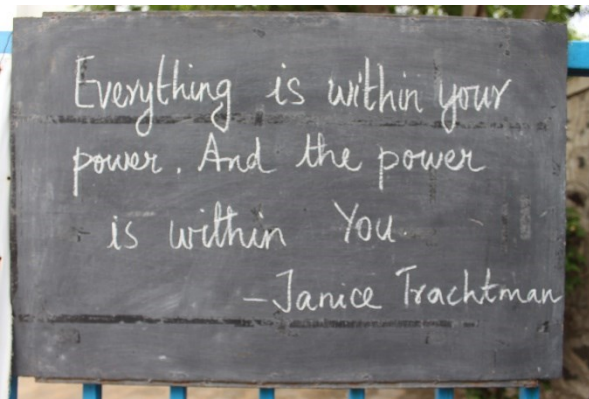 Everything is within your
power. And the power
is within You.
-Janice Trachtman